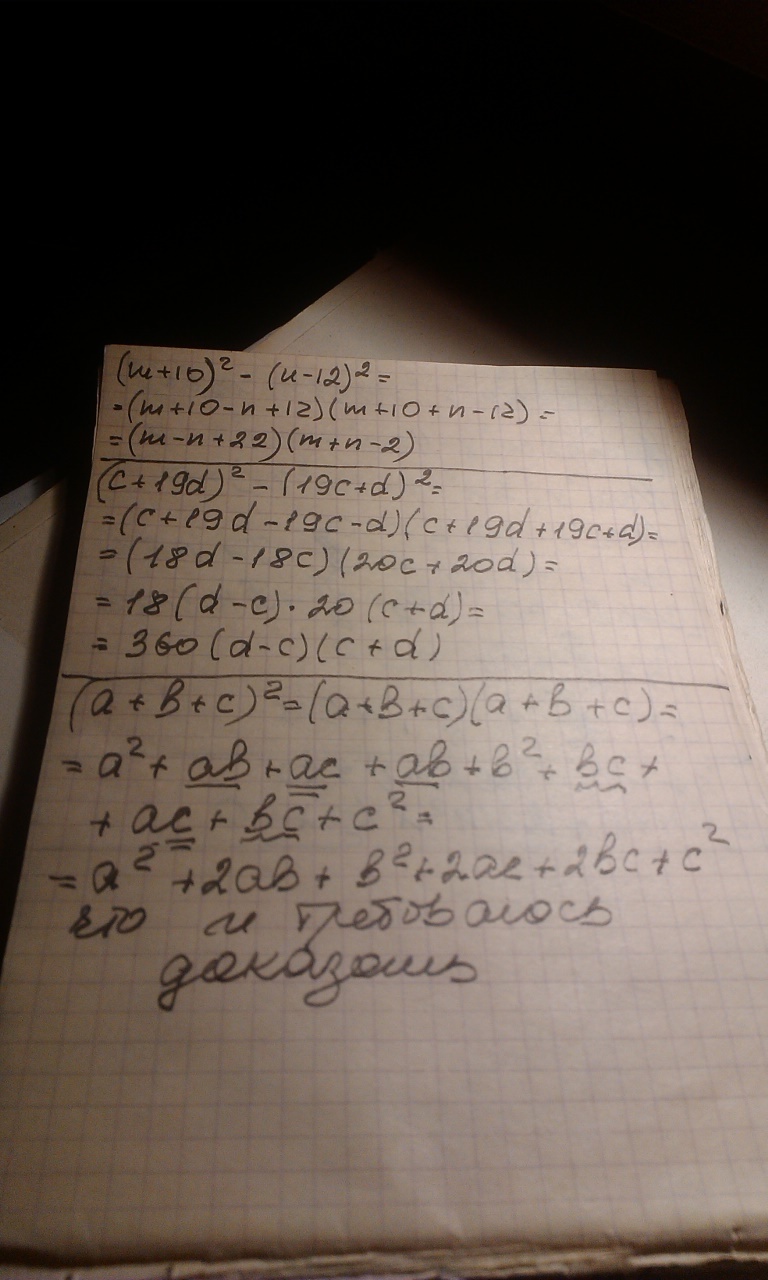 (m+10)² - (n-12)² =
=(m+10-n+12)(m+10+n-12) =
=(m-n+22)(m+n-2)
(c+19d)² - (19c+d)² =
=(c+19d-19c-d)(c+19d+19c+d)=
=(18d-18c)(20c+20d)=
= 18(d-c)·20(c+d)=
= 360(d-c)(c+d)
(a+в+c)²=(a+в+c)(a+в+c)=
= a²+ aв+ac +aв+в²+ вc+
+ ac+ вc+c²=
=a²+2aв+в²+2ac+2вc+c²
что и требовалось
доказать